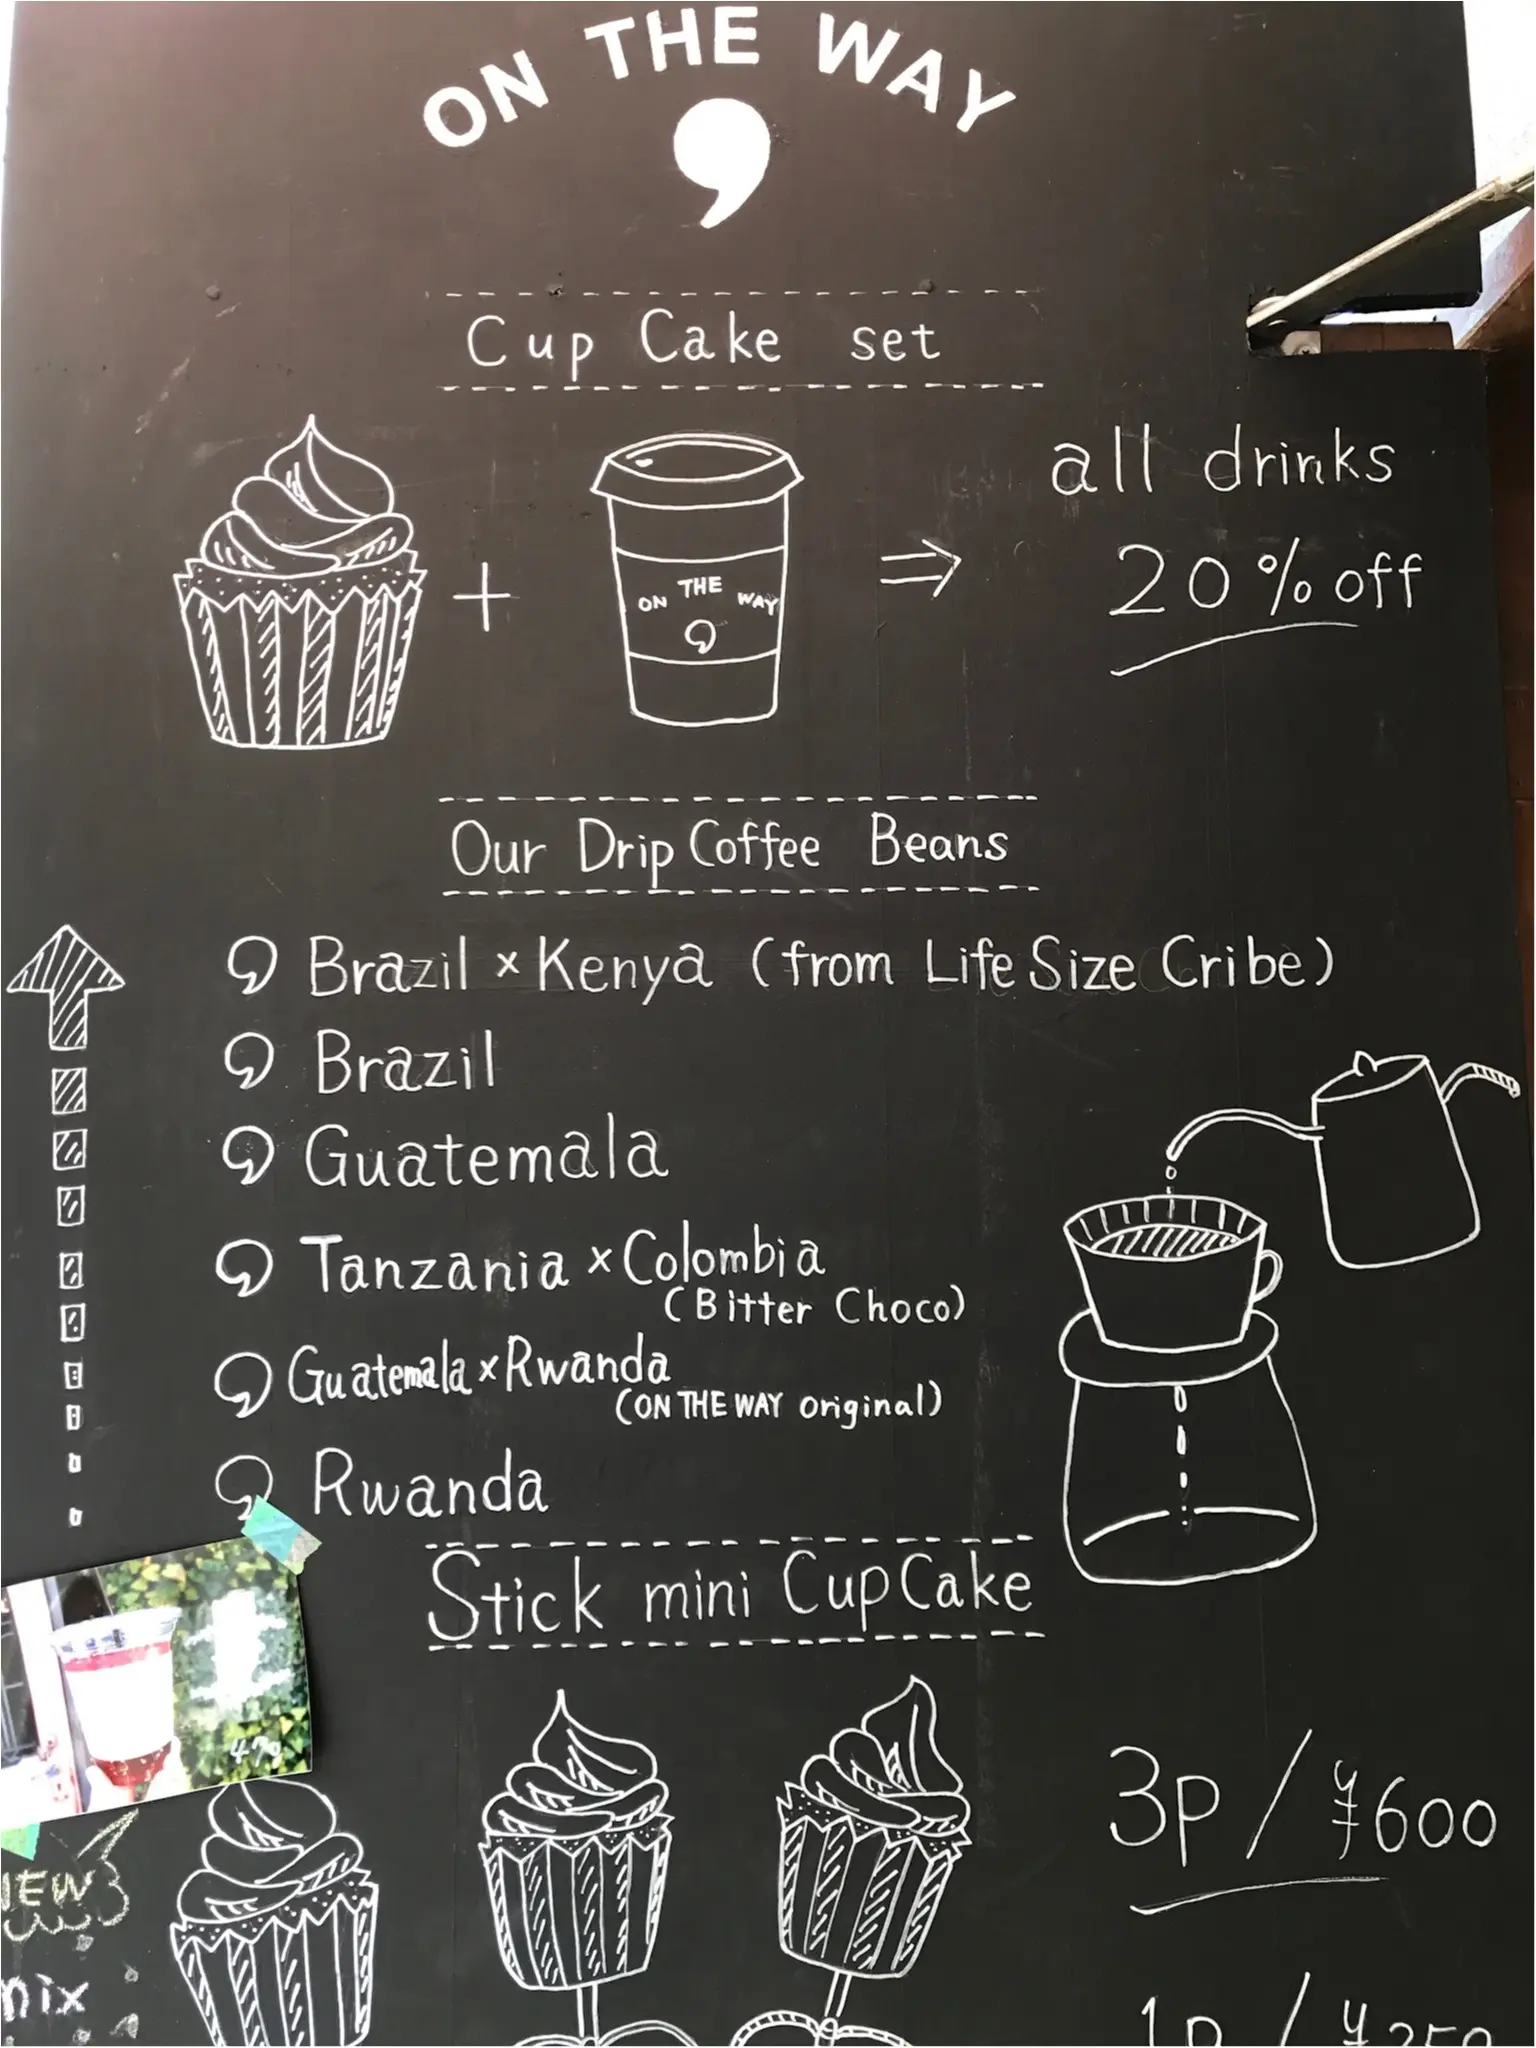 ON THE WAY
Cup Cake set
all drinks
ON THE WAY
20%off
Our Drip Coffee Beans
Brazil × Kenya (from Life Size Cribe)
Brazil
Guatemala
Tanzania × Colombia
(Bitter Choco)
Guatemala × Rwanda
(ON THE WAY original)
Rwanda
Stick mini CupCake
3p / ¥600
mix
1p / ¥350